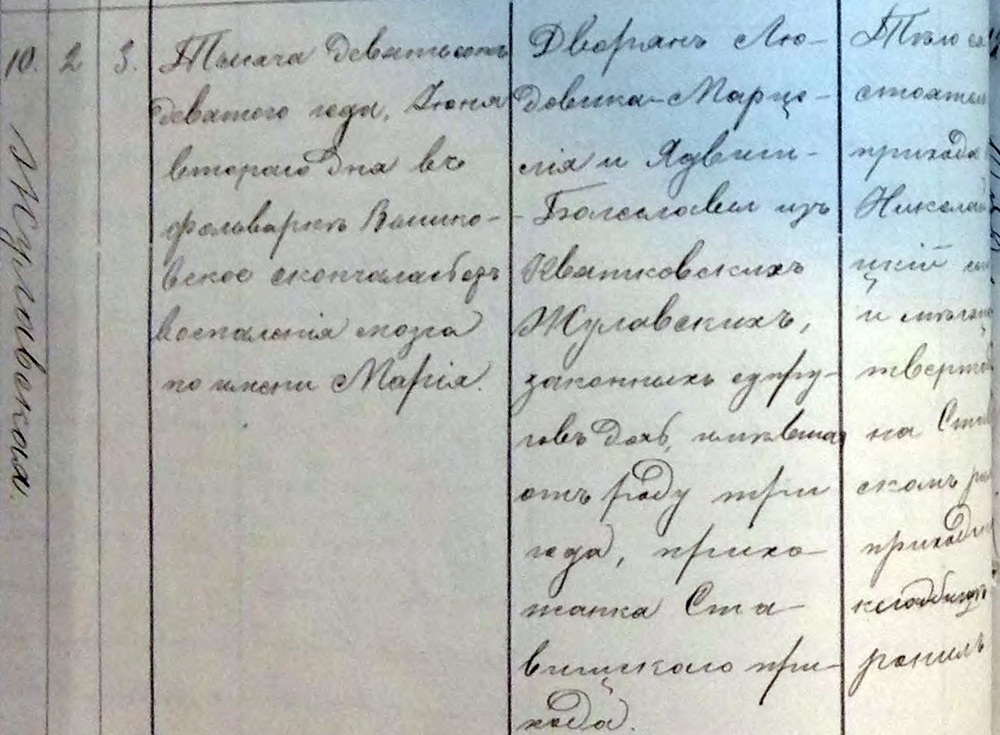 Жулавская.
10. 2 3.
Тысяча девятьсотъ
девятого года, Іюня
второго дня въ
фольваркѣ
вское скончалась отъ
воспаленія мозга
по имени Марія.
Дворянъ Лю-
довика-Марце-
лія и Ядвиги-
-Болеславы изъ
Квятковскихъ
Жулавскихъ,
законныхъ супру-
говъ дочь, имѣвшая
отъ роду три
года, прихо-
жанка Ста-
вищскаго при-
хода.
Тѣло
стоятел
прихода
Никола
цкій
и
тверт
на
скомъ
приход
кладбищѣ
ронилъ